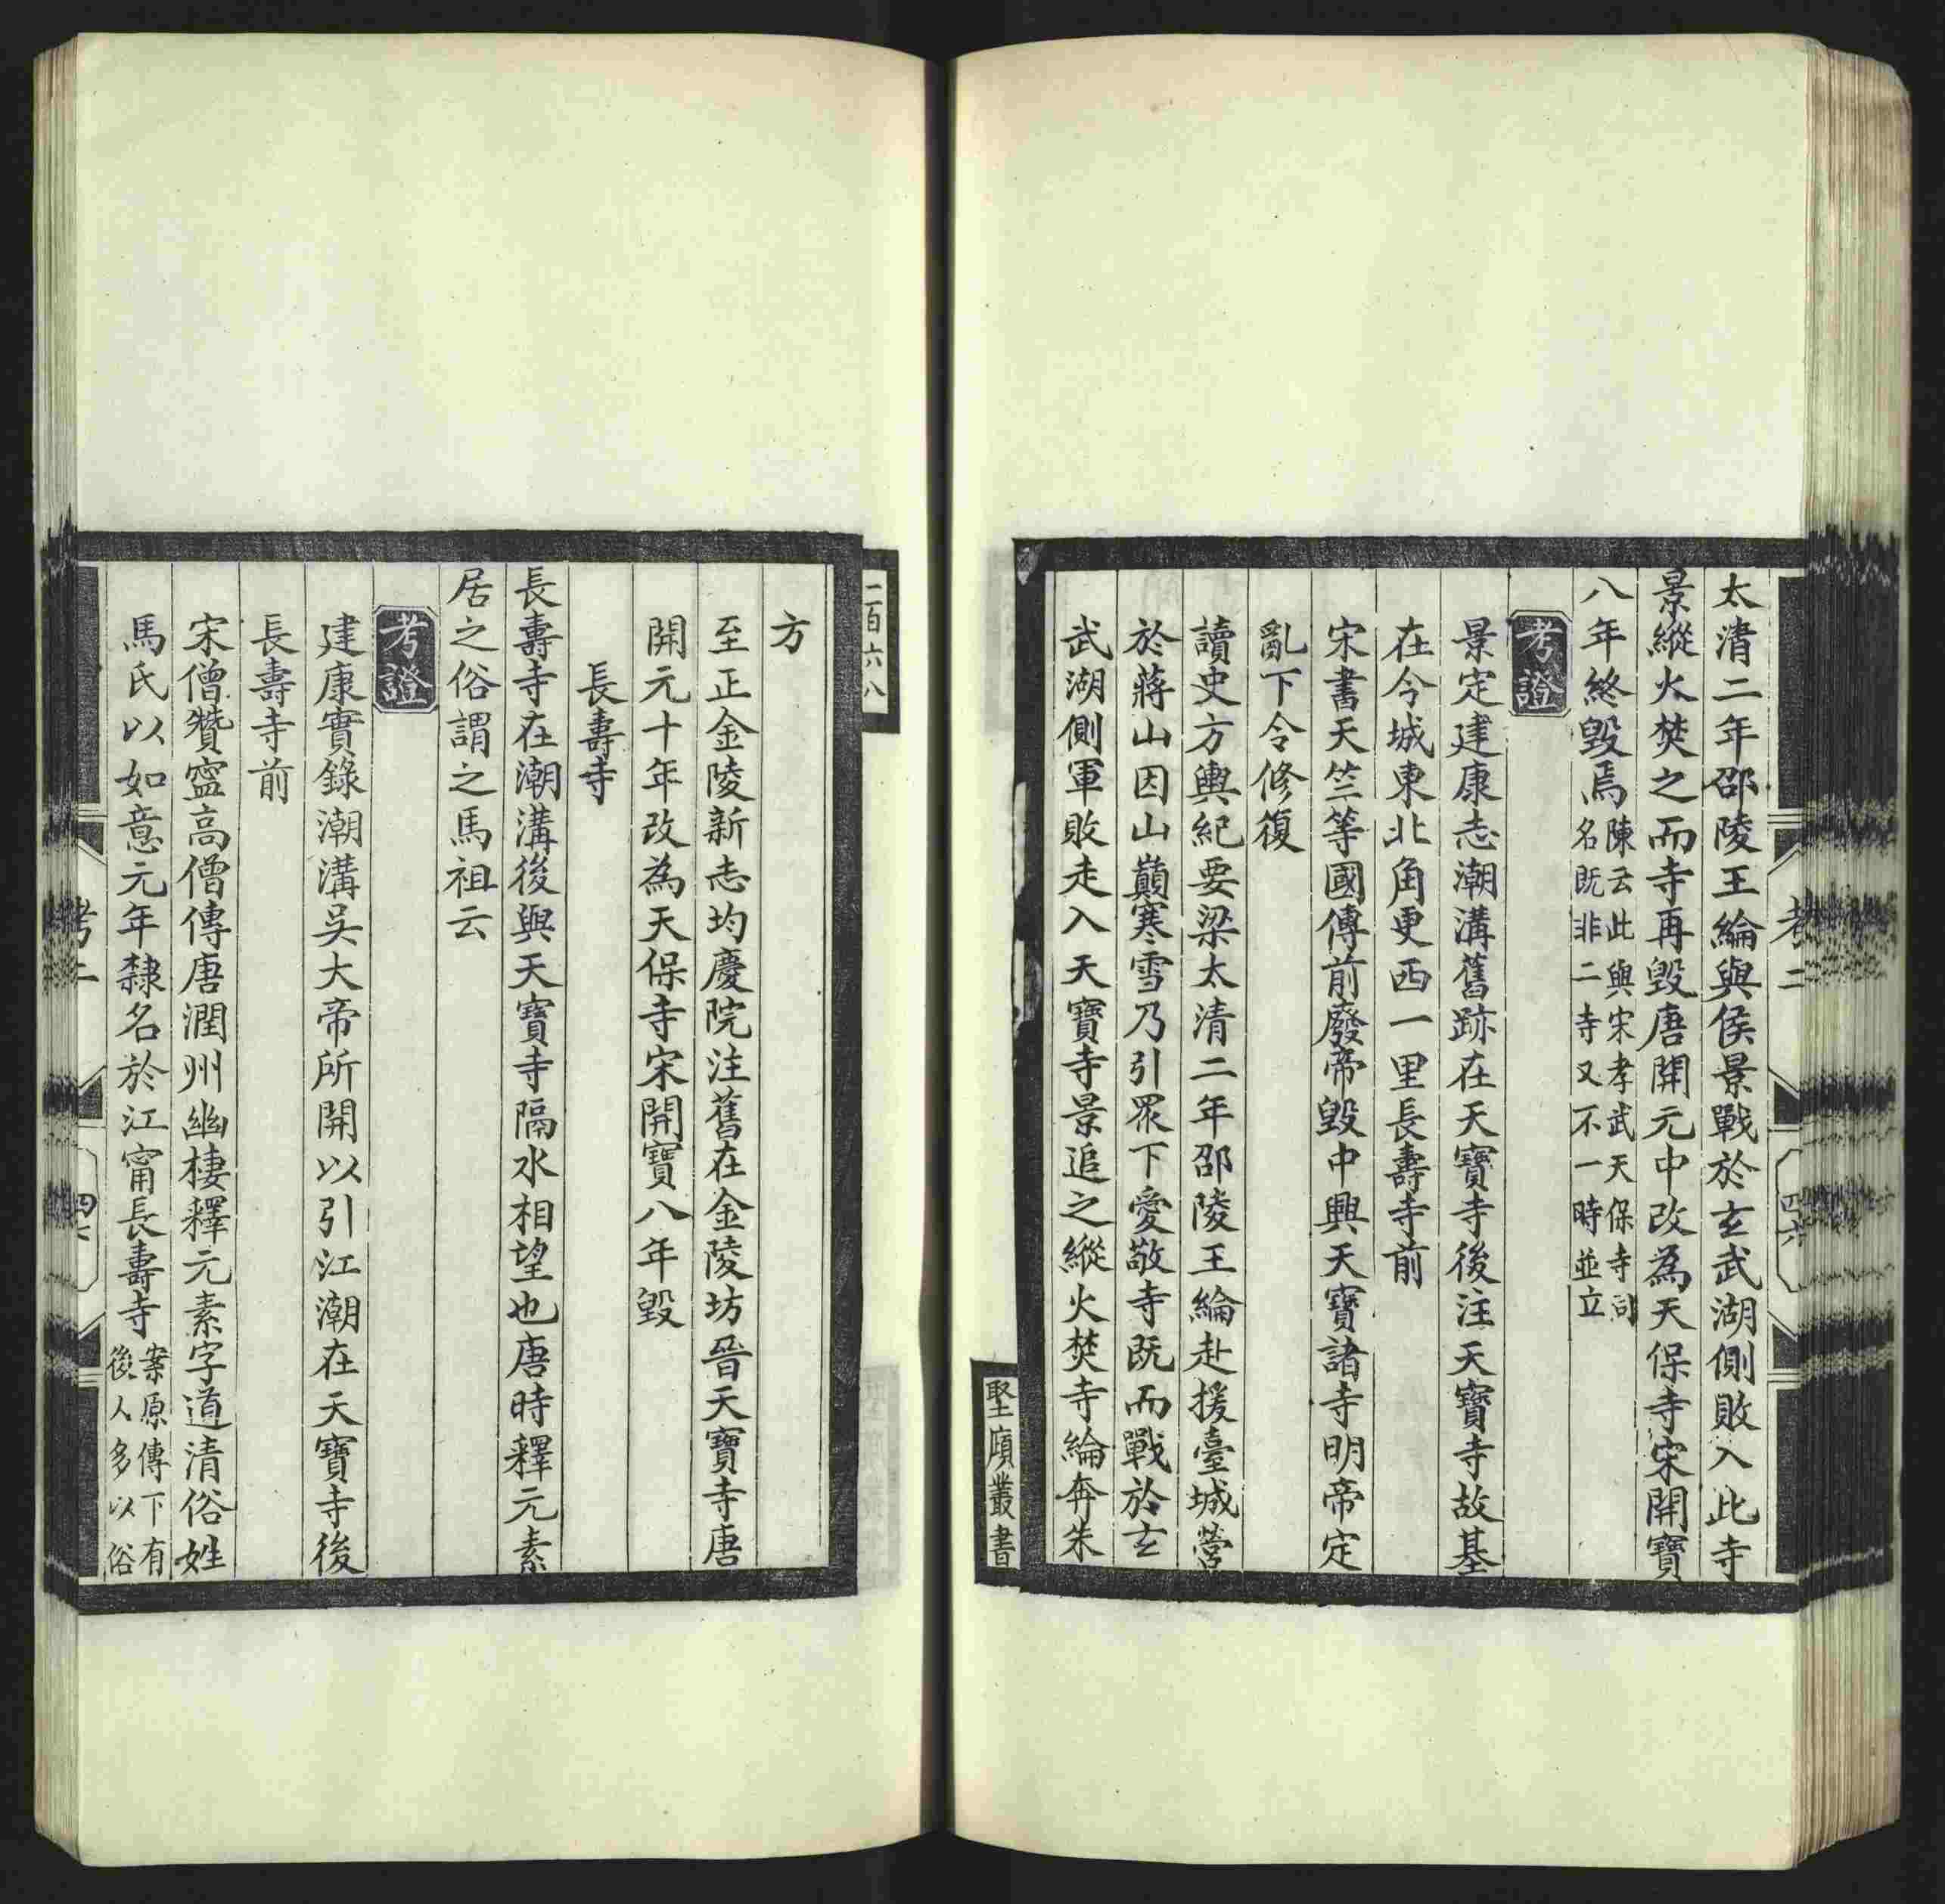 太清二年邵陵王綸與侯景戰於玄武湖側敗入此寺
景縱火焚之而寺再毀唐開元中改為天保寺宋開寶
八年終毀焉陳云此與宋孝武天保寺同名既非二寺又不一時並立
考證
景定建康志潮溝舊跡在天寶寺後注天寶寺故基
在今城東北角更西一里長壽寺前
宋書天竺等國傳前廢帝毀中興天寶諸寺明帝定
亂下令修復
讀史方輿紀要梁太清二年邵陵王綸赴援臺城營
於蔣山因山巔寒雪乃引眾下愛敬寺既而戰於玄
武湖側軍敗走入天寶寺景追之縱火焚寺綸奔朱
方
至正金陵新志均慶院注舊在金陵坊晉天寶寺唐
開元十年改為天保寺宋開寶八年毀
長壽寺
長壽寺在潮溝後與天寶寺隔水相望也唐時釋元素
居之俗謂之馬祖云
考證
建康實錄潮溝吳大帝所開以引江潮在天寶寺後
長壽寺前
宋僧贊寧高僧傳唐潤州幽棲釋元素字道清俗姓
馬氏以如意元年隸名於江甯長壽寺案原傳下有後人多以俗
考二
四六
堅頎叢書
二百六八
考二